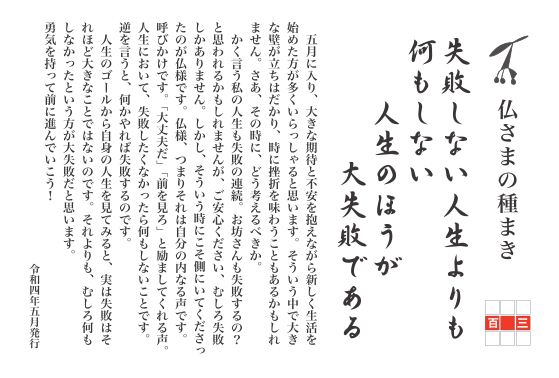 仏さまの種まき
百三
失敗しない人生よりも
何もしない
人生のほうが
大失敗である
五月に入り、大きな期待と不安を抱えながら新しく生活を
始めた方が多くいらっしゃると思います。そういう中で大き
な壁が立ちはだかり、時に挫折を味わうこともあるかもしれ
ません。さあ、その時に、どう考えるべきか。
かく言う私の人生も失敗の連続。お坊さんも失敗するの？
と思われるかもしれませんが、ご安心ください、むしろ失敗
しかありません。しかし、そういう時にこそ側にいてくださっ
たのが仏様です。仏様、つまりそれは自分の内なる声です。
呼びかけです。「大丈夫だ」「前を見ろ」と励ましてくれる声。
人生において、失敗したくなかったら何もしないことです。
逆を言うと、何かやれば失敗するのです。
人生のゴールから自身の人生を見てみると、実は失敗はそ
れほど大きなことではないのです。それよりも、むしろ何も
しなかったという方が大失敗だと思います。
勇気を持って前に進んでいこう！
令和四年五月発行